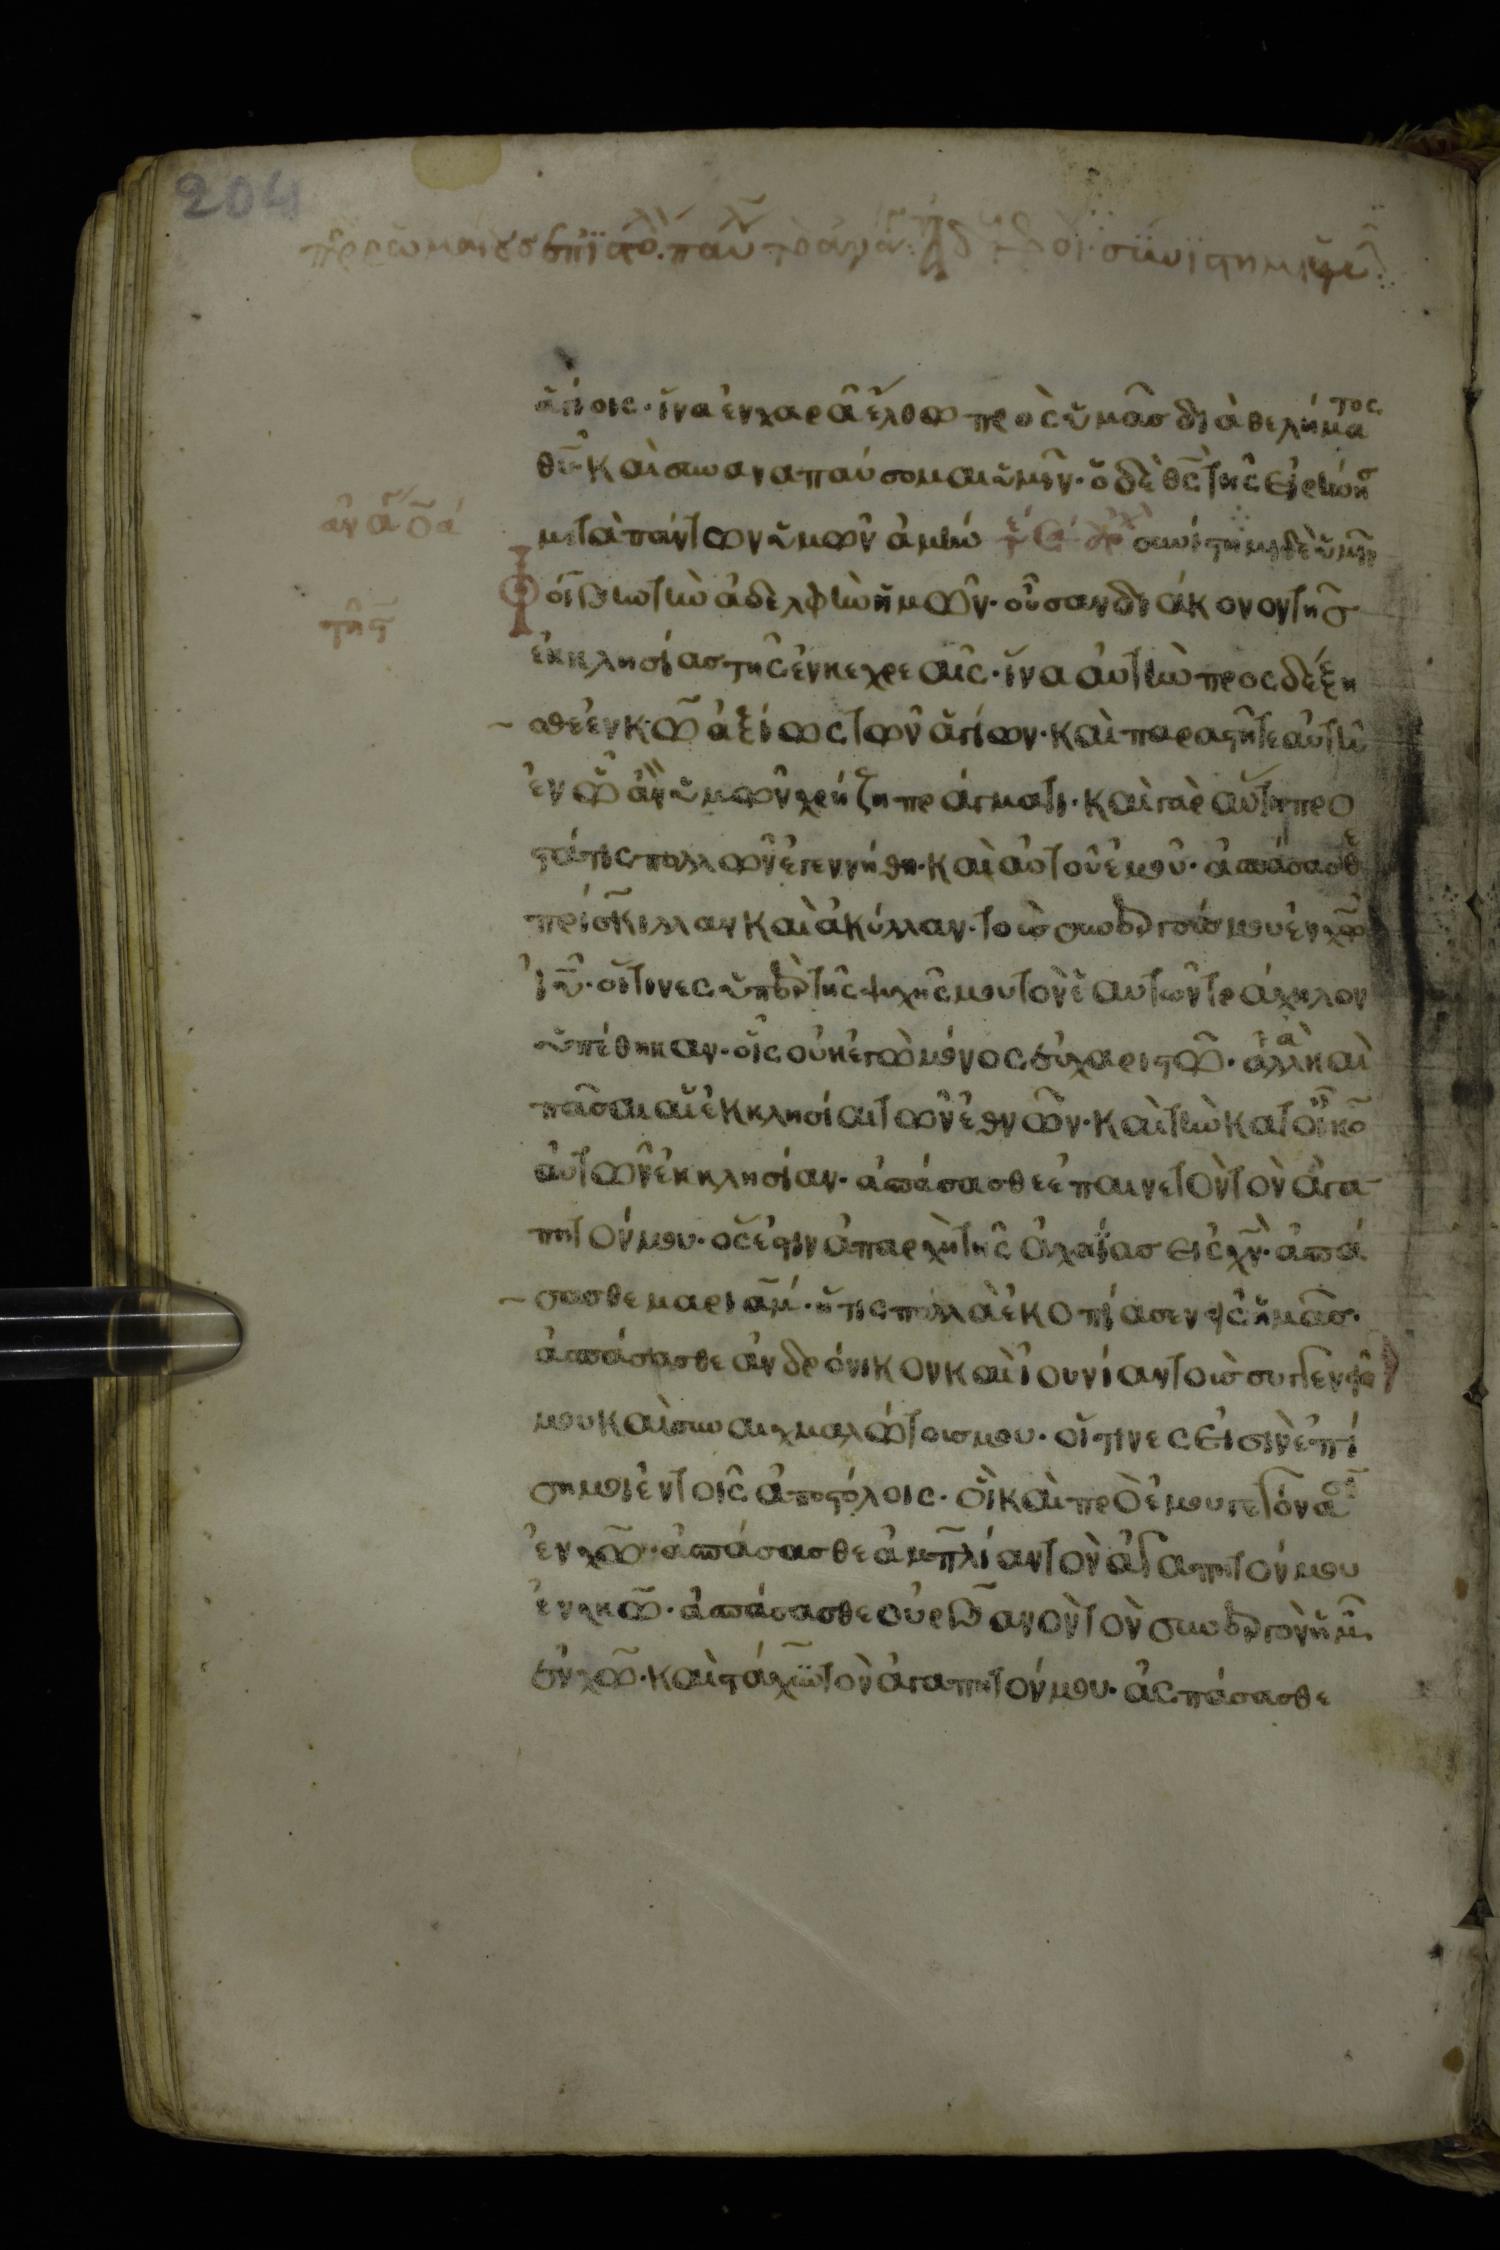 204
ἁγίοις· ἵνα ἐν χαρᾶ ἔλθω πρὸς ὑμᾶς διὰ θελήματος
θυ̅· καὶ συναναπαύσομαι ὑμῖν· ὁ δὲ θς̅ τῆς εἰρήνης
μετὰ πάντων ὑμῶν ἀμήν συνίστημι δὲ ὑμῖν
Φοίβην τὴν ἀδελφὴν ἡμῶν· οὖσαν διάκονον τῆς
ἐκκλησίας τῆς ἐν κεχρεαῖς· ἵνα αὐτὴν προσδέξη
σθε ἐν κω̅ ἀξίως τῶν ἁγίων· καὶ παραστῆτε αὐτῆ
ἐν ὧ ἂν ὑμῶν χρήζη πράγματι· καὶ γὰρ αὕτη προ
στάτις πολλῶν ἐγεννήθη· καὶ αὐτοῦ ἐμοῦ· ἀσπάσασθε
πρίσκιλλαν καὶ ἀκύλλαν· τοὺς συνεργούς μου ἐν χω̅
ἰυ̅· οἵτινες ὑπὲρ τῆς ψυχῆς μου τὸν ἑαυτῶν τράχηλον
ὑπέθηκαν· οἷς οὐκ ἐγὼ μόνος εὐχαριστῶ· ἀλλὰ καὶ
πᾶσαι αἱ ἐκκλησίαι τῶν ἐθνῶν· καὶ τὴν κατ οἶκον
αὐτῶν ἐκκλησίαν· ἀσπάσασθε ἐπαινετὸν τὸν ἀγα
πητόν μου· ὅς ἐστιν ἀπαρχὴ τῆς ἀχαΐας εἰς χν̅· ἀσπά
σασθε μαριάμ· ἥτις πολλὰ ἐκοπίασεν εἰς ἡμᾶς·
ἀσπάσασθε ἀνδρόνικον καὶ ἰουνίαν τοὺς συγγενεῖς
μου καὶ συναιχμαλώτους μου· οἵτινες εἰσὶν ἐπί
σημοι ἐν τοῖς ἀποστόλοις· οἳ καὶ πρὸ ἐμοῦ γεγόνασιν
ἐν χω̅· ἀσπάσασθε ἀμπλίαν τὸν ἀγαπητόν μου
ἐν κω̅· ἀσπάσασθε οὐρβανὸν τὸν συνεργὸν ἡμῶν
ἐν χω̅· καὶ στάχυν τὸν ἀγαπητόν μου· ἀσπάσασθε